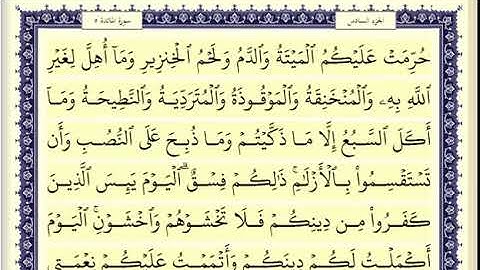 الجزء السادس
سورة المائدة ٥
حُرِّمَتْ عَلَيْكُمُ ٱلْمَيْتَةُ وَٱلدَّمُ وَلَحْمُ ٱلْخِنزِيرِ وَمَآ أُهِلَّ لِغَيْرِ
ٱللَّهِ بِهِۦ وَٱلْمُنْخَنِقَةُ وَٱلْمَوْقُوذَةُ وَٱلْمُتَرَدِّيَةُ وَٱلنَّطِيحَةُ وَمَآ
أَكَلَ ٱلسَّبُعُ إِلَّا مَا ذَكَّيْتُمْ وَمَا ذُبِحَ عَلَى ٱلنُّصُبِ وَأَن
تَسْتَقْسِمُوا۟ بِٱلْأَزْلَٰمِ ۚ ذَٰلِكُمْ فِسْقٌ ۗ ٱلْيَوْمَ يَئِسَ ٱلَّذِينَ
كَفَرُوا۟ مِن دِينِكُمْ فَلَا تَخْشَوْهُمْ وَٱخْشَوْنِ ۚ ٱلْيَوْمَ
أَكْمَلْتُ لَكُمْ دِينَكُمْ وَأَتْمَمْتُ عَلَيْكُمْ نِعْمَتِى